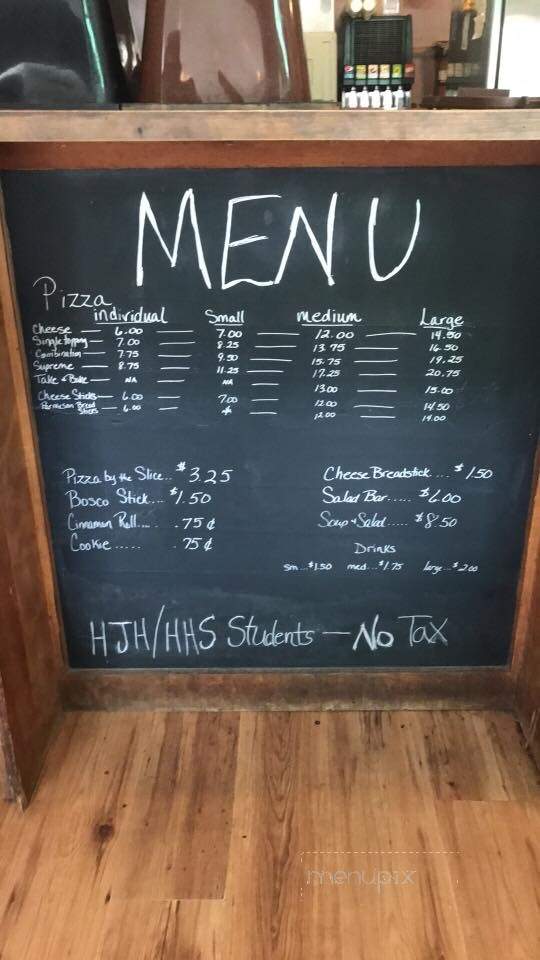 MENU
Pizza
individual Small medium Large
Cheese — 6.00 — 7.00 — 12.00 — 14.50
Single topping — 7.00 — 8.25 — 13.75 — 16.50
Combination — 7.75 — 9.50 — 15.75 — 19.25
Supreme — 8.75 — 11.25 — 17.25 — 20.75
Take & Bake — NA — NA — 13.00 — 15.00
Cheese Sticks — 6.00 — 7.00 — 12.00 — 14.50
Parmesan Bread Sticks — 6.00 — — 12.00 — 14.00
Pizza by the Slice.. $3.25
Bosco Stick.... $1.50
Cinnamon Roll.... .75¢
Cookie ..... .75¢
Cheese Breadstick.... $1.50
Salad Bar..... $6.00
Soup & Salad..... $8.50
Drinks
sm...$1.50 med...$1.75 large...$2.00
HJH/HHS Students — No Tax
menupix